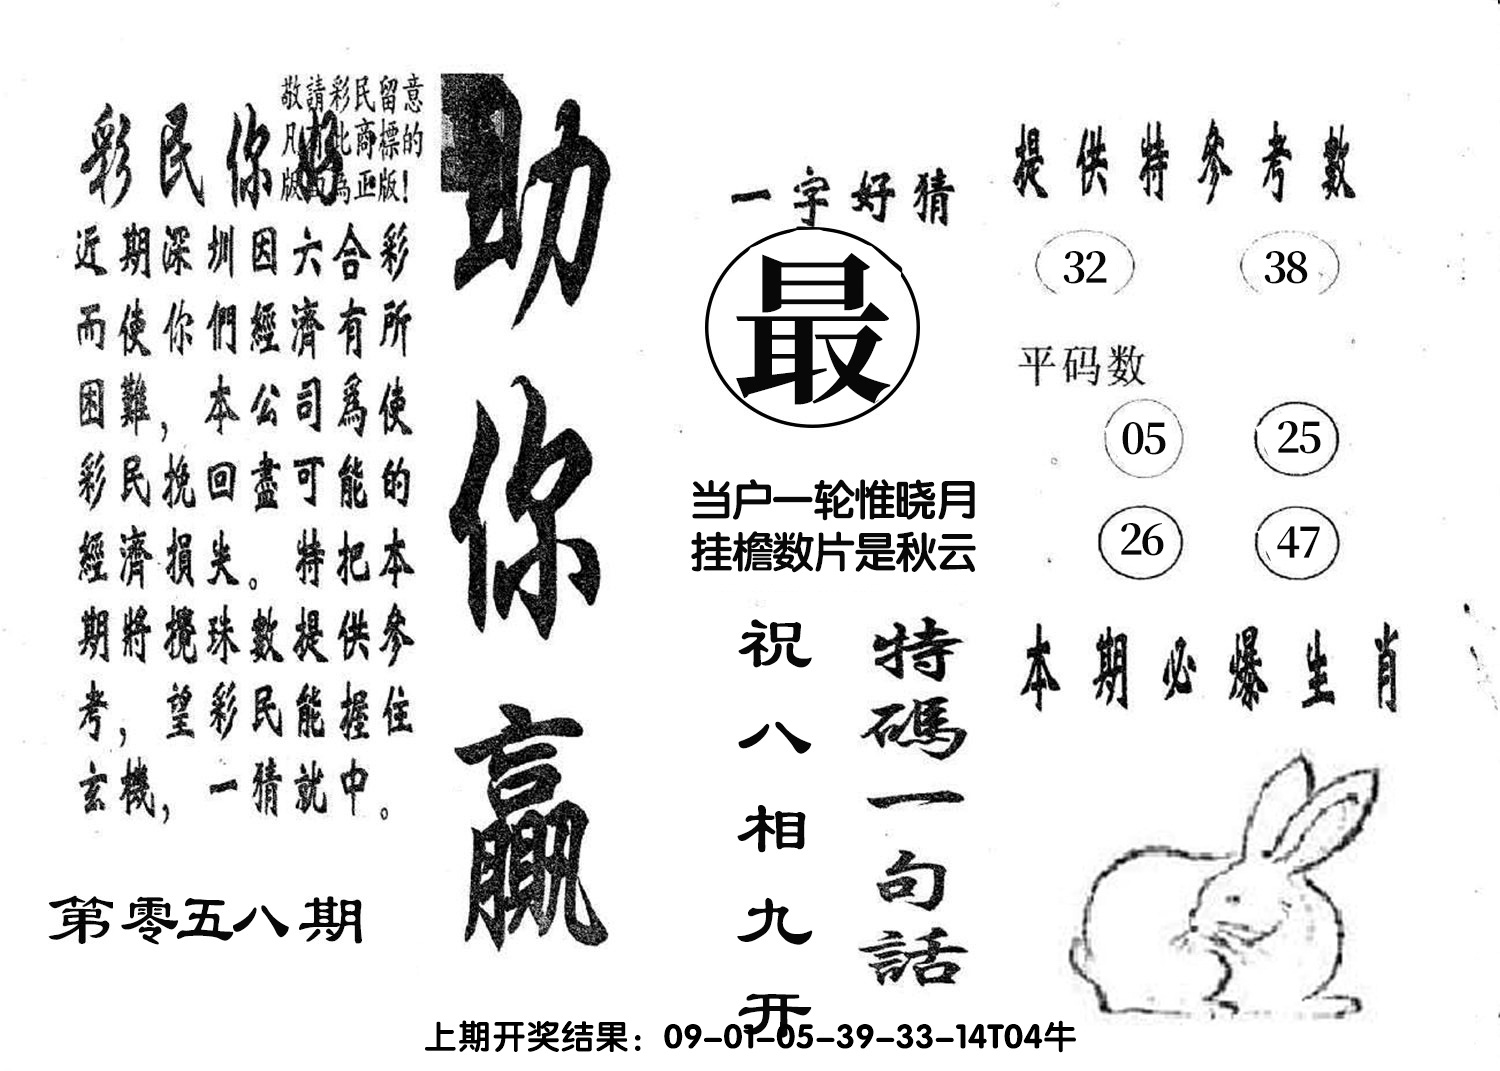 敬請彩民留意
凡有此商標的
版面為正版!
彩民你好
近期深圳因六合彩
而使你們經濟有所
困難，本公司爲使
彩民挽回盡可能的
經濟損失。特把本
期將攪珠數提供參
考，望彩民能握住
玄機，一猜就中。
第零五八期
助你贏
一字好猜
最
当户一轮惟晓月
挂檐数片是秋云
特碼一句話
祝八相九开
提供特參考數
32 38
平码数
05 25
26 47
本期必爆生肖
上期开奖结果：09-01-05-39-33-14T04牛